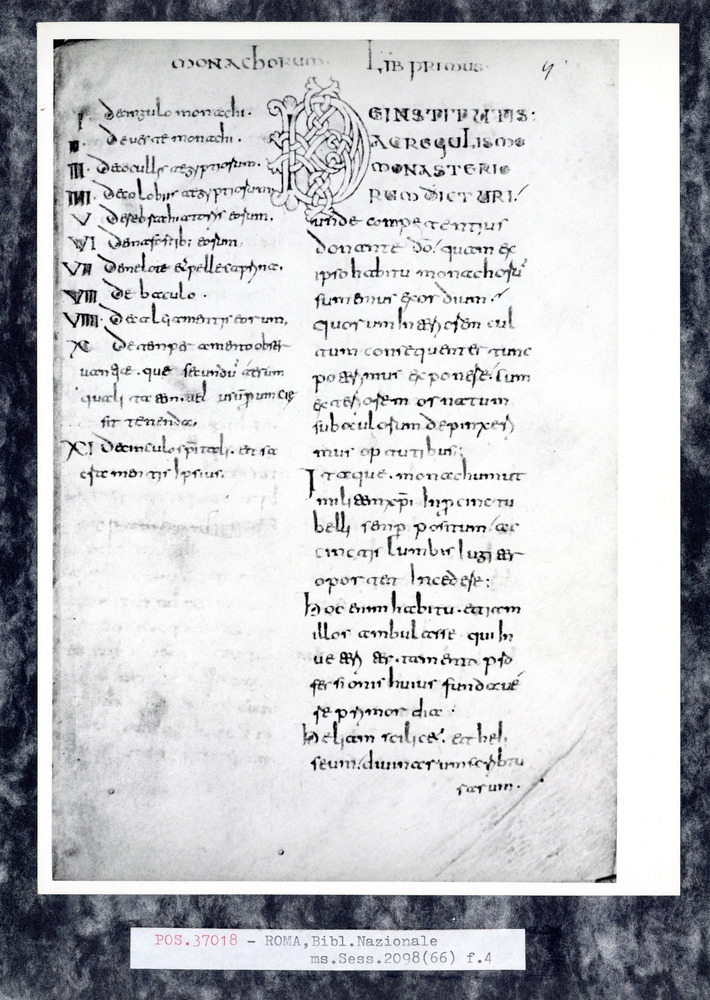 monachorum Lib primus
4
I De cingulo monachi.
II De veste monachi.
III De cucullis aegyptiorum.
IIII De colobiis aegyptiorum
V De rebrachiatoriis eorum.
VI De mafortib; eorum.
VII De melote et pelle caprina.
VIII De baculo.
VIIII De calciamentis eorum.
X De temperamento obser
vantiae. que secundu aerum
quali tatem. vel usum provinciae
sit tenenda.
XI De cinculo spitali. et sa
cramentis ipsius.
DE INSTITUTIS:
AC REGULIS MO
NASTERIO
RUM DICTURI.
unde competentius
donante do. quam ex
ipso habitu monachoru
sumemus exordium.
quorum interiorem cul
tum consequenter tunc
poterimus exponere. cum
exteriorem ornatum
sub oculorum depinxeri
mus optutibus;
Itaque. monachum ut
militem xpi. in procinctu
belli semp positum. ac
cinctis lumbis iugiter
oportet incedere;
hoc enim habitu. etiam
illos ambulasse qui in
veteri tes.tamento pro
fessionis huius fundave
re primordia.
heliam scilicet. et heli
seum. divinarum scribtu
rarum.
POS.37018 - ROMA,Bibl.Nazionale
ms.Sess.2098(66) f.4